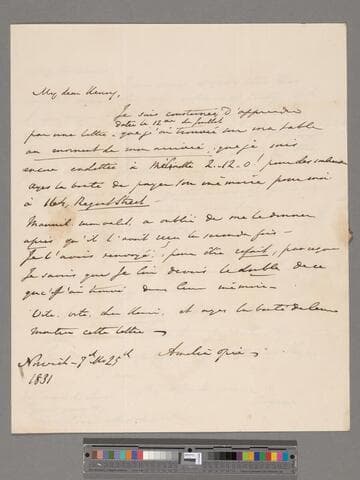 My dear Henry,
Je suis consternée d'apprendre
datée le 12me de Juillet
par une lettre que j'ai trouvée sur ma table
au moment de mon arrivée, que je suis
encore endettée à 2-12-0! pour des
Ayez la bonté de payer son mémoire pour moi
à 164, Regent Street—
a oublié de me le donner
après qu'il l'avait reçu la seconde fois—
Je l'avais renvoyé, pour être refait,
Je savais que je lui devais le double de ce
que j'ai trouvé dans leur mémoire—
Vite, vite, cher Henri, et ayez la bonté de leur
montrer cette lettre—
Amelia Opie
Norwich— 7bre 25th
1831